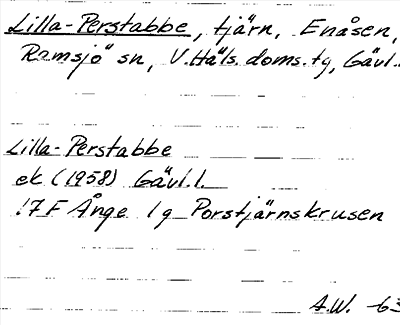 Lilla-Perstabbe, tjärn, Enåsen,
Ramsjö sn, V.Häls. doms.tg, Gävl.
Lilla-Perstabbe
ek (1958) Gävl.l.
17F Ånge 1g Porstjärnskrusen
A.W. -63